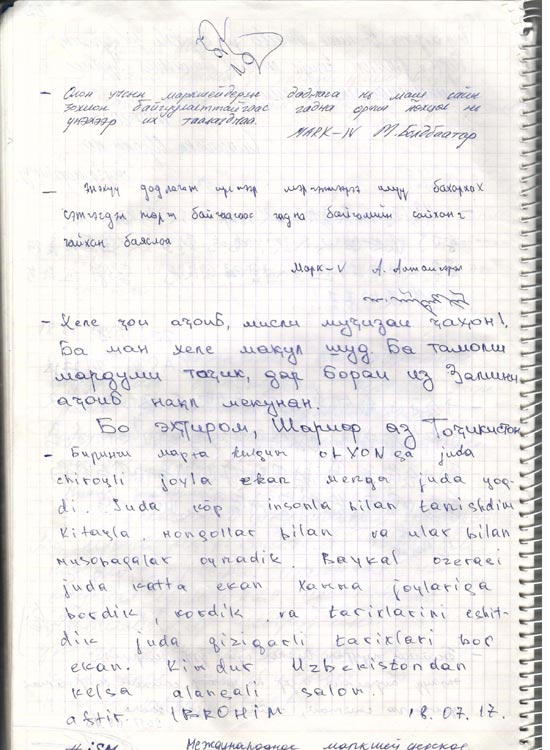 - Олон учсин маркшейдерын дадлага нь маш сайн
зохион байгуулалттайгаас гадна орчин нөхцөл нь
үнэхээр их таалагдлаа.
МАРК-IV М.Болдбаатар
- Энэхүү дадлагат мэргэжлээрээ илүү бахархах
сэтгэгдэл төрж байгаагаас гадна байгалийн сайханг
гайхан баяслаа
Марк-V А. Алтангэрэл
- Хеле ҷои аҷоиб, мисли муъҷизаи ҷаҳон!
Ба ман хеле мақул шуд Ба тамоми
мардуми тоҷик, дар бораи из Замини
аҷоиб нақл мекунам.
Бо эҳтиром, Шариф аз Тоҷикистон
- Биринчи марта келдим OLXONga juda
chiroyli joyla ekan menga juda yoq-
di. Juda kop insonla bilan tanishdim
Kitayla, mongollar bilan va ular bilan
musobaqalar oynadik. Baykal ozerasi
juda katta ekan Xamma joylariga
bordik, kordik va tarixlarini eshit-
dik juda qiziqarli tarixlari bor
ekan. Kimdur Uzbekistondan
kelsa alangali salom.
aftir. IBROHIM 18.07.17.
Международное маркшейдерское